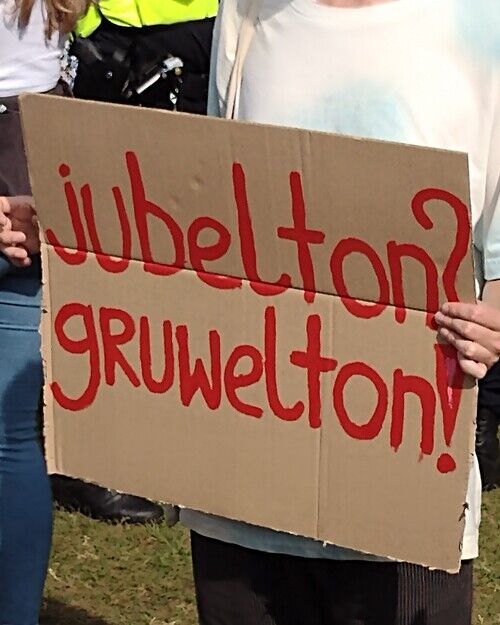 jubelton?
gruwelton!